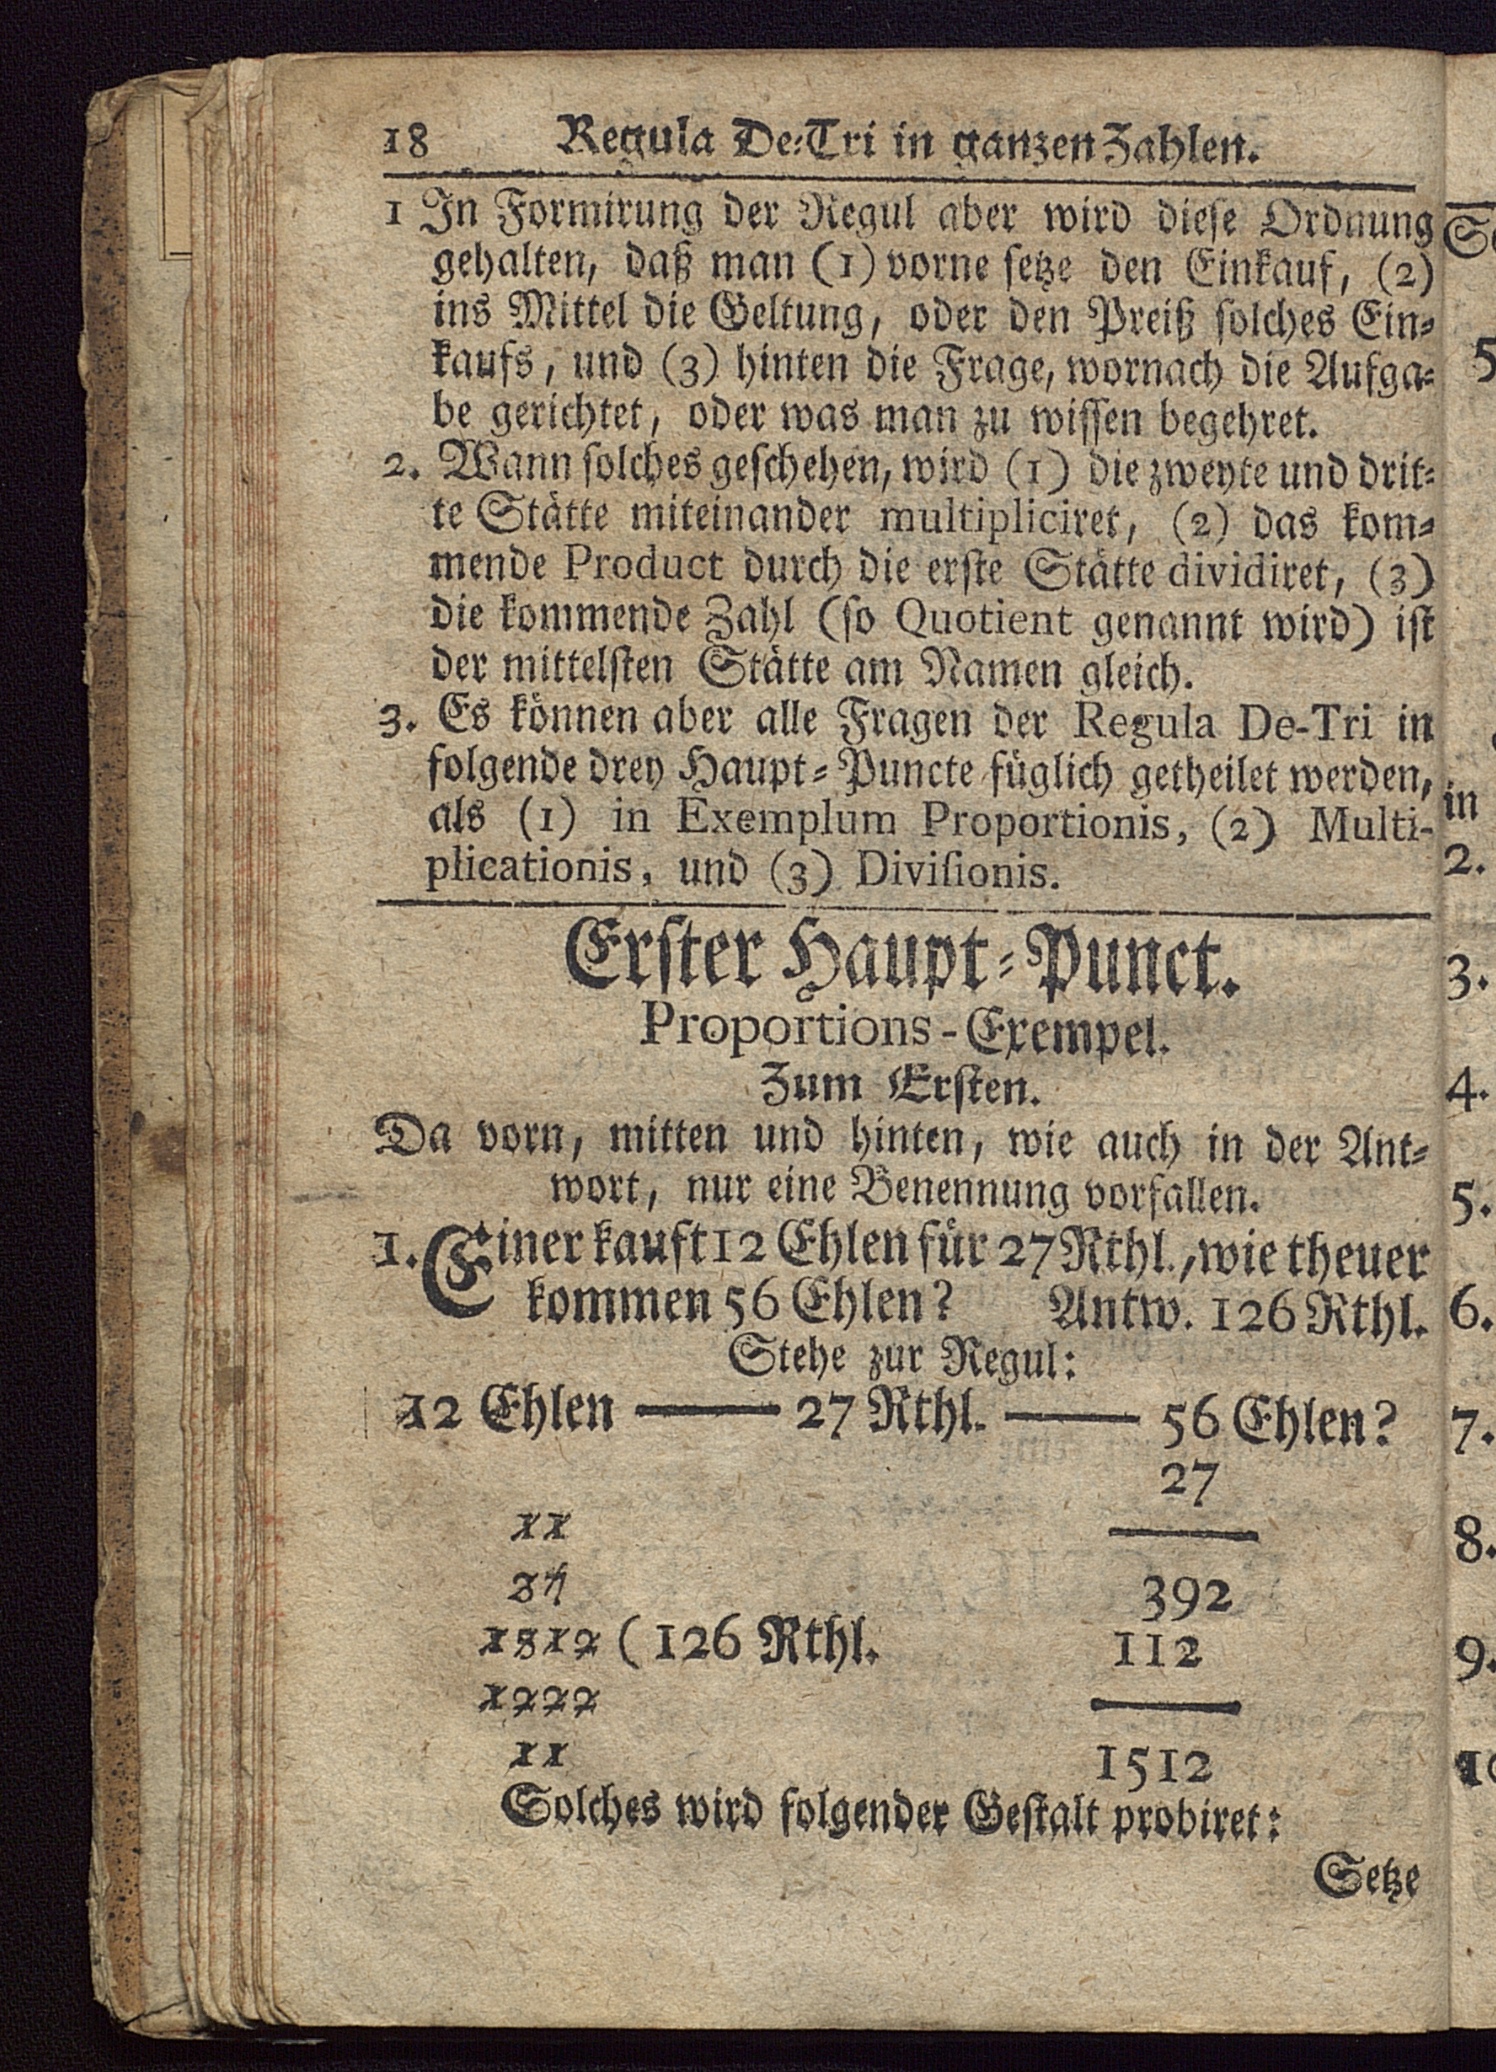 18 Regula De-Tri in ganzen Zahlen.
1 In Formirung der Regul aber wird diese Ordnung
gehalten, daß man (1) vorne setze den Einkauf, (2)
ins Mittel die Geltung, oder den Preiß solches Ein-
kaufs, und (3) hinten die Frage, wornach die Aufga-
be gerichtet, oder was man zu wissen begehret.
2. Wann solches geschehen, wird (1) die zweyte und drit-
te Stätte miteinander multipliciret, (2) das kom-
mende Product durch die erste Stätte dividiret, (3)
die kommende Zahl (so Quotient genannt wird) ist
der mittelsten Stätte am Namen gleich.
3. Es können aber alle Fragen der Regula De-Tri in
folgende drey Haupt-Puncte füglich getheilet werden,
als (1) in Exemplum Proportionis, (2) Multi-
plicationis, und (3) Divisionis.
Erster Haupt-Punct.
Proportions-Exempel.
Zum Ersten.
Da vorn, mitten und hinten, wie auch in der Ant-
wort, nur eine Benennung vorfallen.
1. Einer kauft 12 Ehlen für 27 Rthl., wie theuer
kommen 56 Ehlen? Antw. 126 Rthl.
Stehe zur Regul:
12 Ehlen — 27 Rthl. — 56 Ehlen?
27
11
37
392
1512 (126 Rthl.
112
1222
11
1512
Solches wird folgender Gestalt probiret:
Setze
5
in
2.
3.
4.
5.
6.
7.
8.
9.